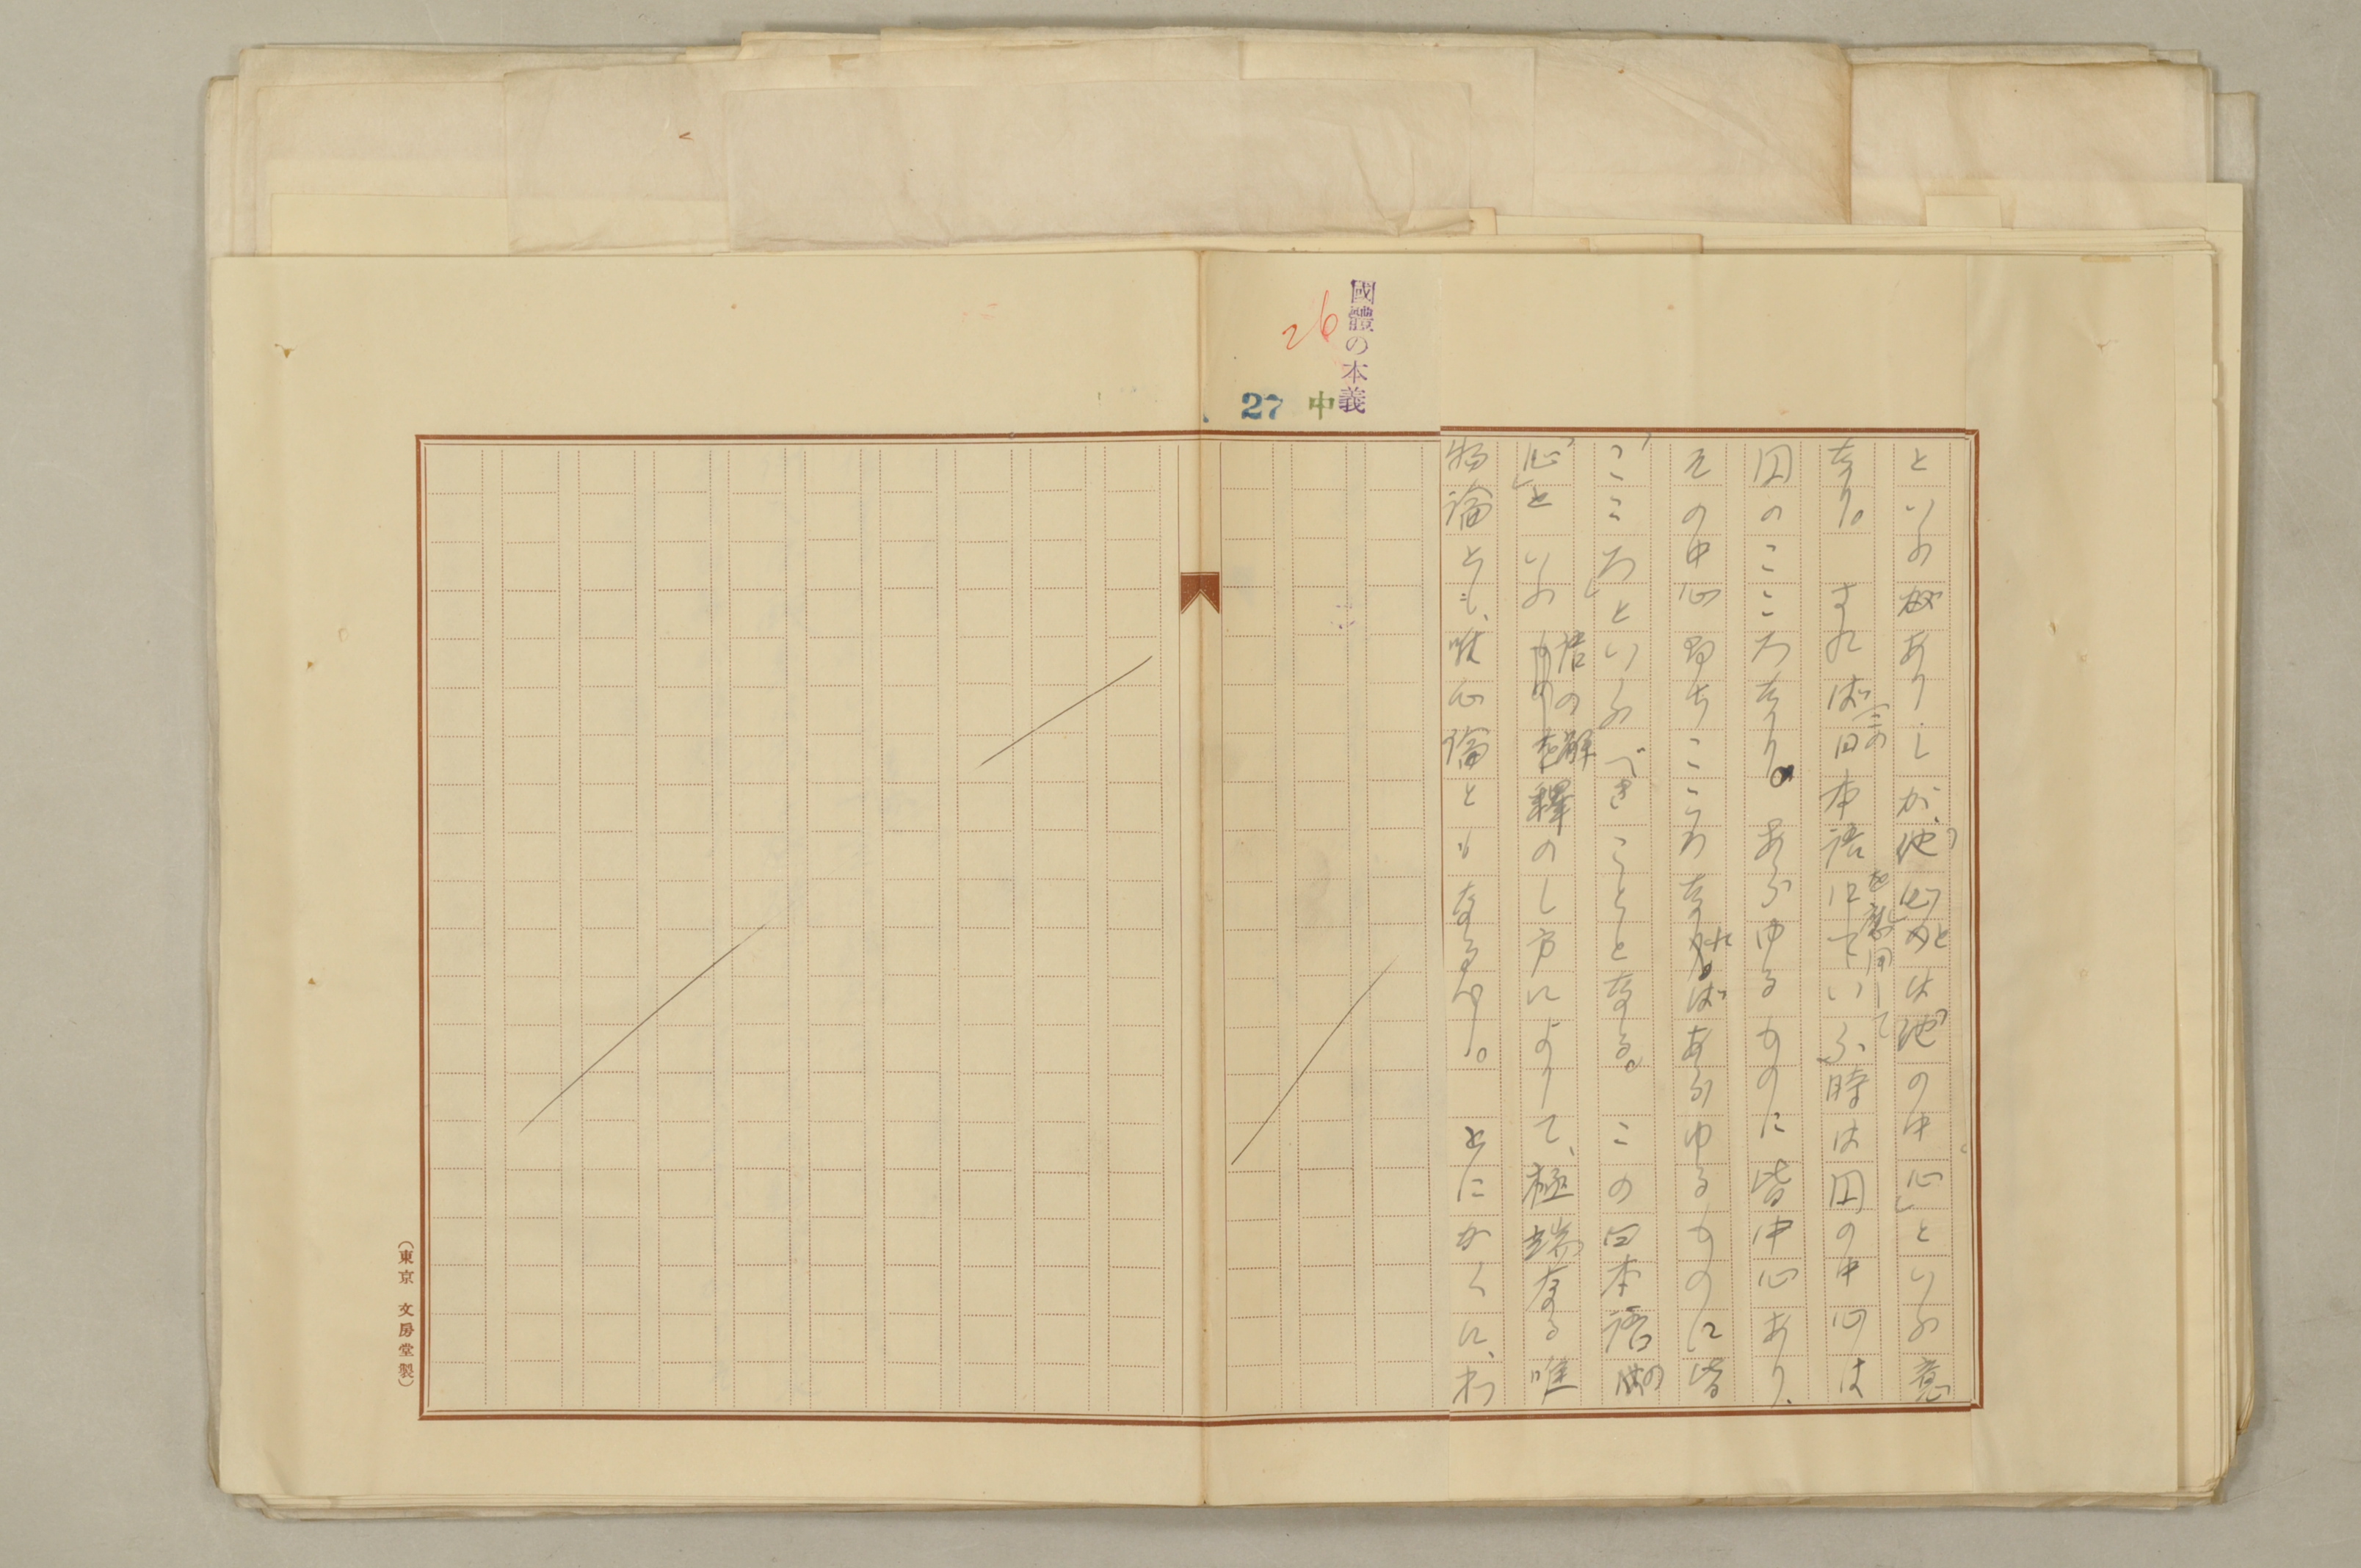 國體の本義
26
27 中
といふありしが、「池心」とは「池の中心」といふ意
なり。 さればこの日本語を應用していふ時は円の中心は
円のこころなり。あらゆるものに皆中心あり、
その中心即ちこころなればあらゆるものに皆
「こころ」といふべきこととなる。 この日本語の
「心」といふ語の解釋のし方によりて、極端なる唯
物論とも、唯心論ともなるべし。 とにかくに、わ
(東京 文房堂製)